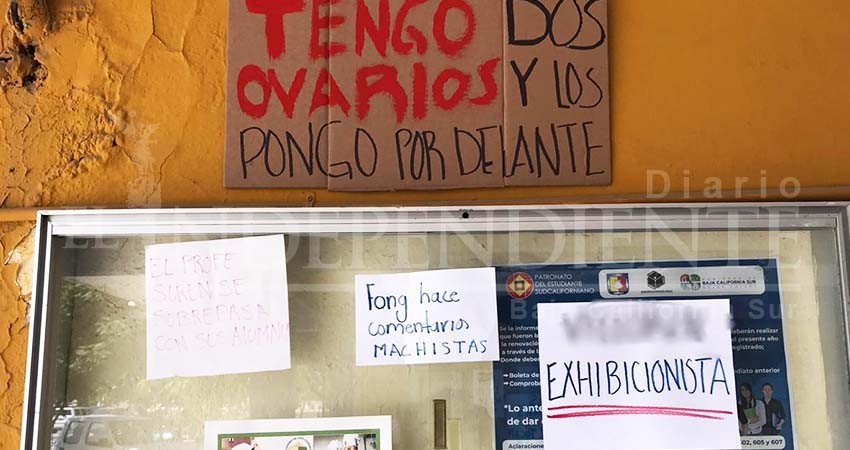 TENGO DOS
OVARIOS Y LOS
PONGO POR DELANTE
Diario
EL INDEPENDIENTE
Baja California Sur
EL PROFE
SOREN SE
SOBREPASA
CON SUS ALUMN
Fong hace
comentarios
MACHISTAS
PATRONATO
DEL ESTUDIANTE
SUDCALIFORNIANO
BAJA CALIFORNIA SUR
Se la informa
que fueron
la renovación
a través de
Donde deber
deberán realizar
el presente año
registrado;
➔ Boleta de
➔ Comprob
diato anterior
EXHIBICIONISTA
*Lo ante
de dar
Aclaracione
602, 605 y 607